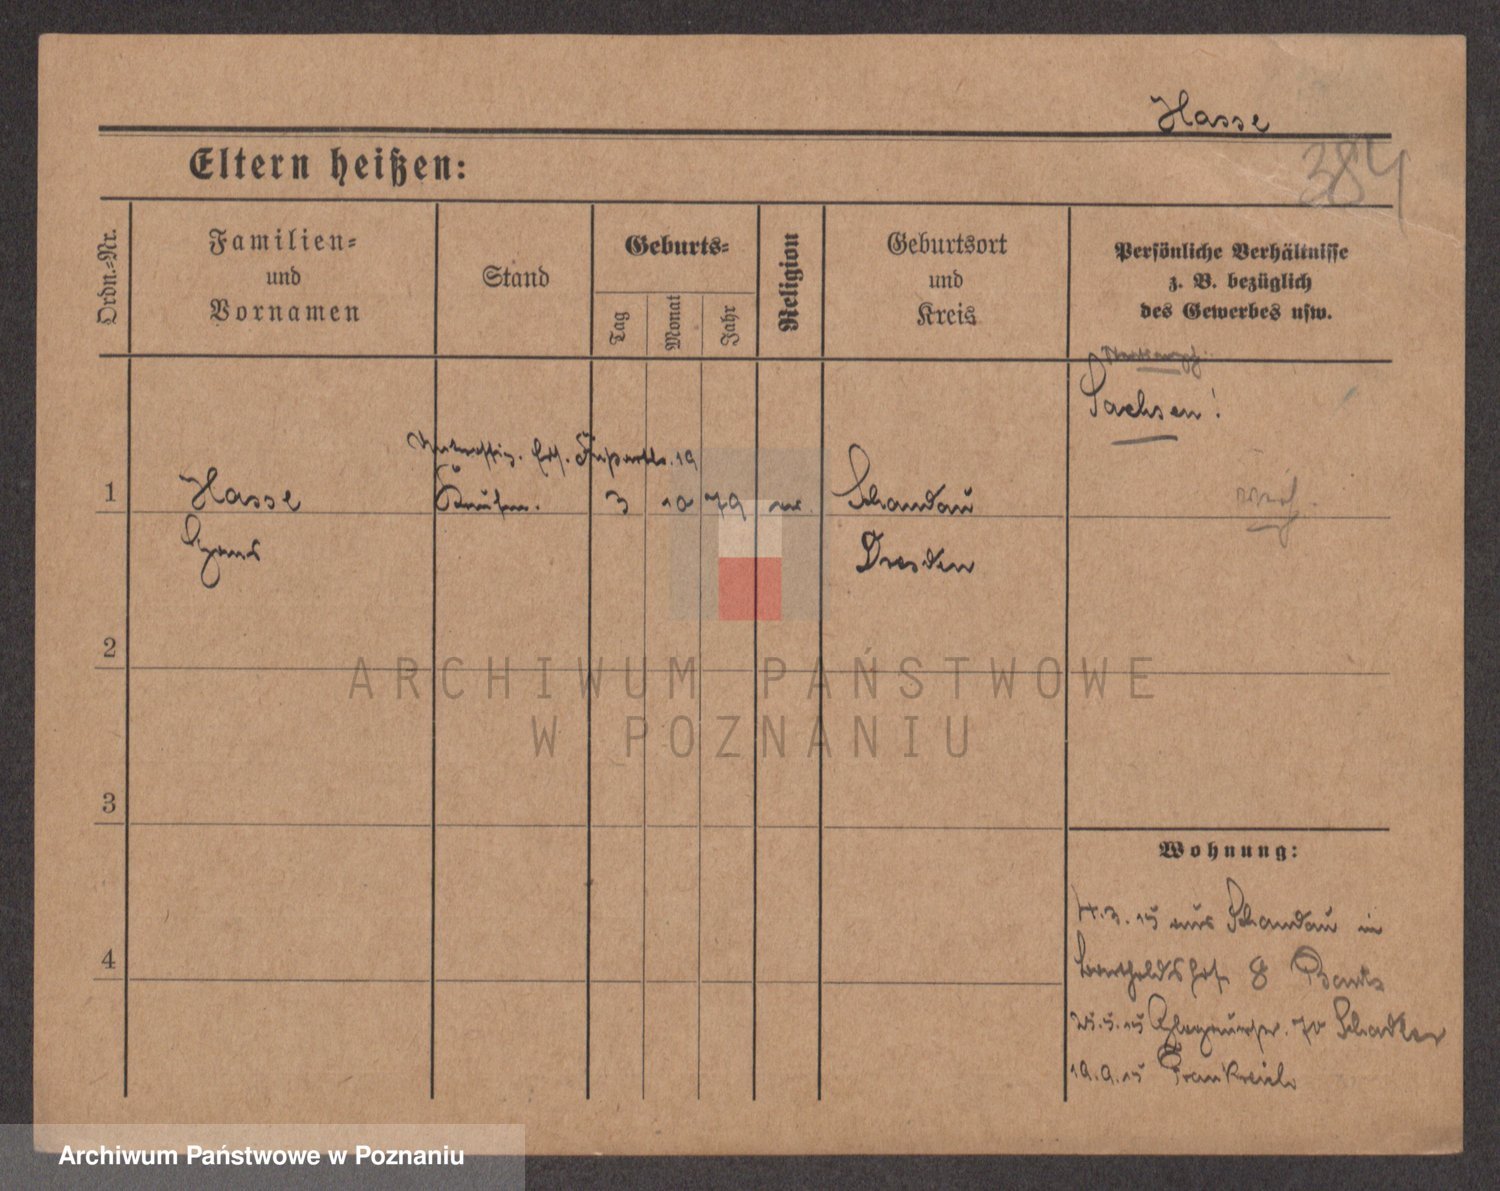 Hasse
384
Eltern heißen:
Ordn.-Nr.
Familien-
und
Vornamen
Stand
Geburts-
Tag
Monat
Jahr
Religion
Geburtsort
und
Kreis
Persönliche Verhältnisse
z. B. bezüglich
des Gewerbes usw.
Sachsen!
1
Hasse
3 10 79
Schandau
Hans
Dresden
2
3
4
Wohnung:
4.3.15 aus Schandau in
8
25.5.15 70
19.9.15 Frankreich
ARCHIWUM PAŃSTWOWE
W POZNANIU
Archiwum Państwowe w Poznaniu